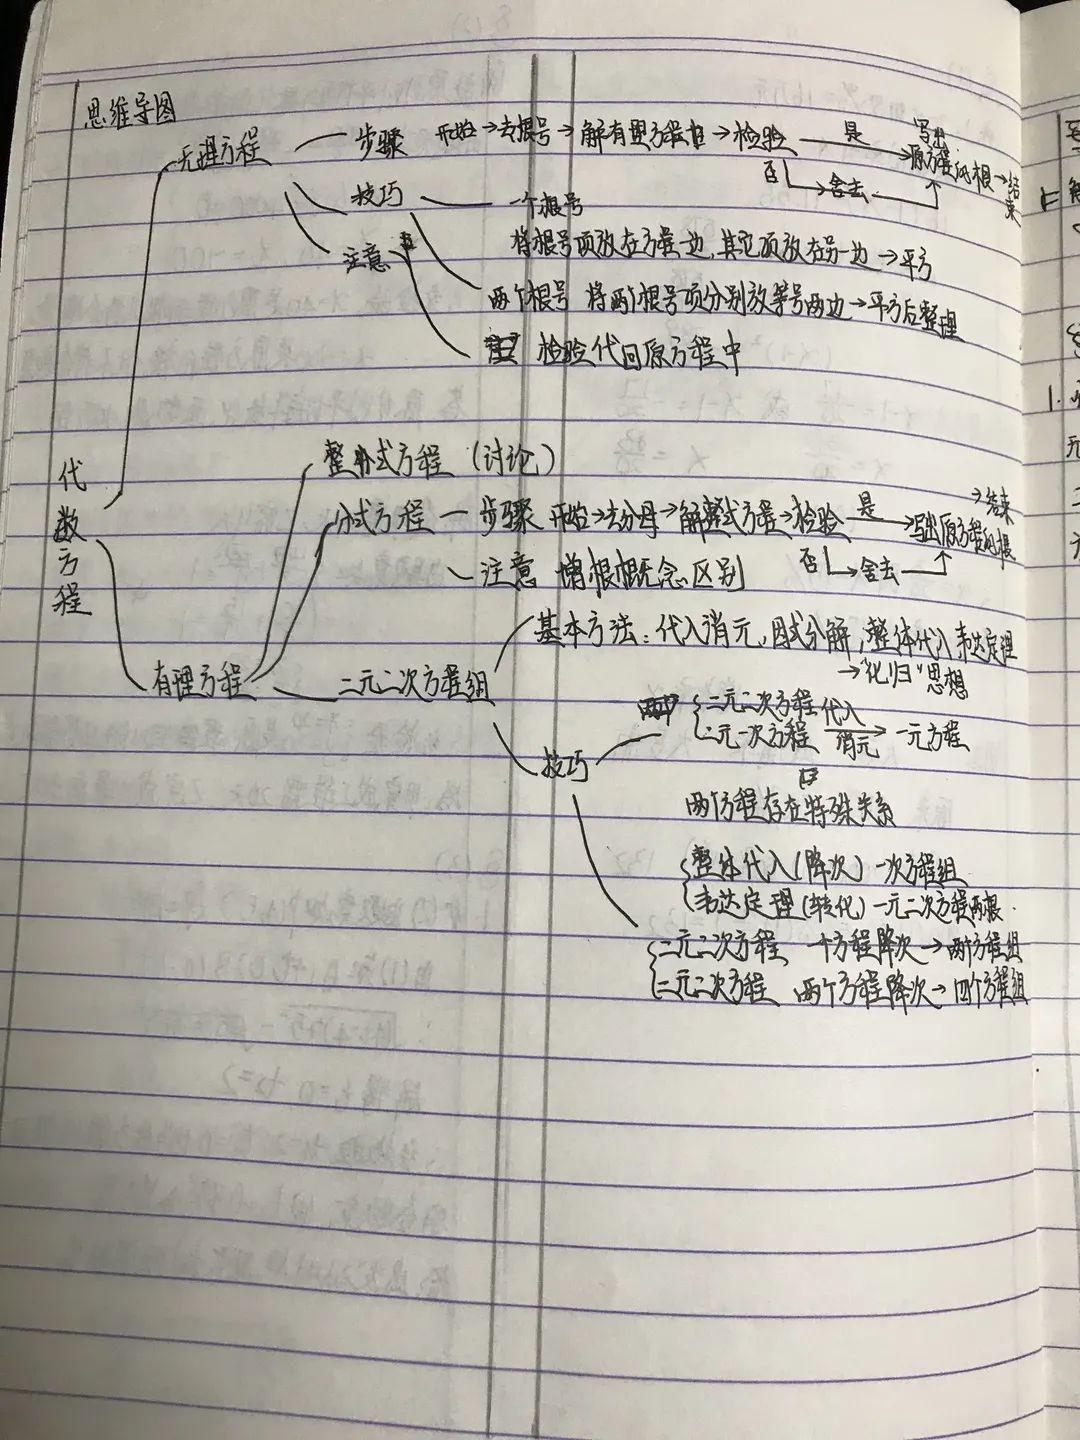 思维导图
无理方程
步骤 开始→去根号→解有理方程→检验 是→写出原方程的根→结束
否 舍去
技巧
一个根号
将根号项放在方程一边,其它项放在另一边→平方
注意
两个根号 将两个根号项分别放等号两边→平方后整理
检验代回原方程中
代数方程
整式方程(讨论)
分式方程 步骤 开始→去分母→解整式方程→检验 是→写出原方程的根→结束
否 舍去
注意 增根概念区别
基本方法:代入消元,因式分解,整体代入韦达定理
→"化归"思想
有理方程
二元二次方程组
二元二次方程
二元一次方程 代入消元→一元方程
技巧
两个方程存在特殊关系
整体代入(降次) 一次方程组
韦达定理(转化) 一元二次方程两根
二元二次方程 一个方程降次→两个方程组
二元二次方程 两个方程降次→四个方程组